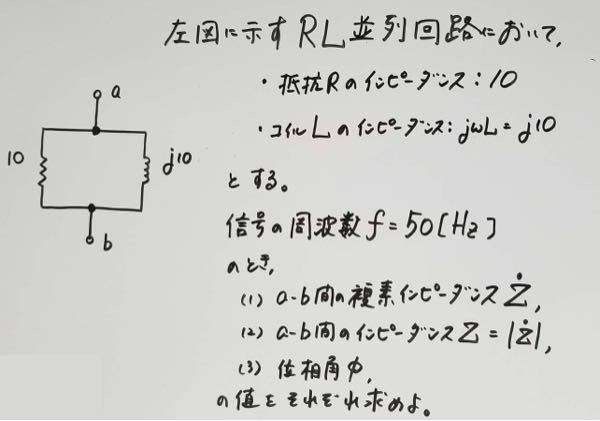 左図に示すRL並列回路において、
・抵抗Rのインピーダンス:10
・コイルLのインピーダンス:jωL=j10
とする。
信号の周波数f=50[Hz]
のとき、
(1) a-b間の複素インピーダンスŻ,
(2) a-b間のインピーダンスZ=|Ż|,
(3) 位相角φ,
の値をそれぞれ求めよ。
a
10
j10
b